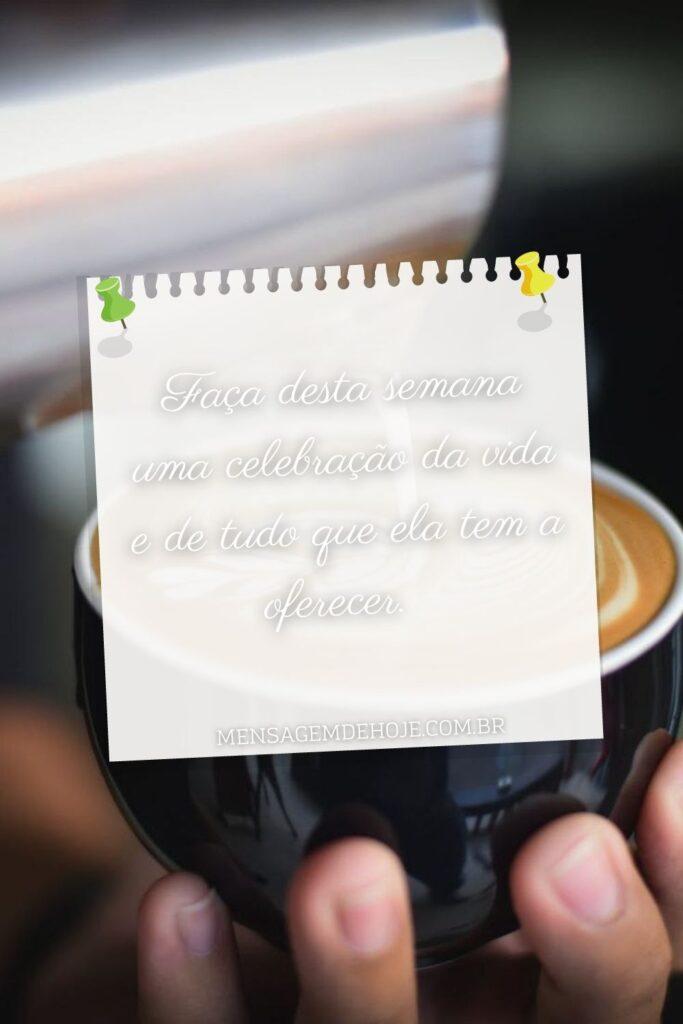 Faça desta semana
uma celebração da vida
e de tudo que ela tem a
oferecer.
MENSAGEMDEHOJE.COM.BR